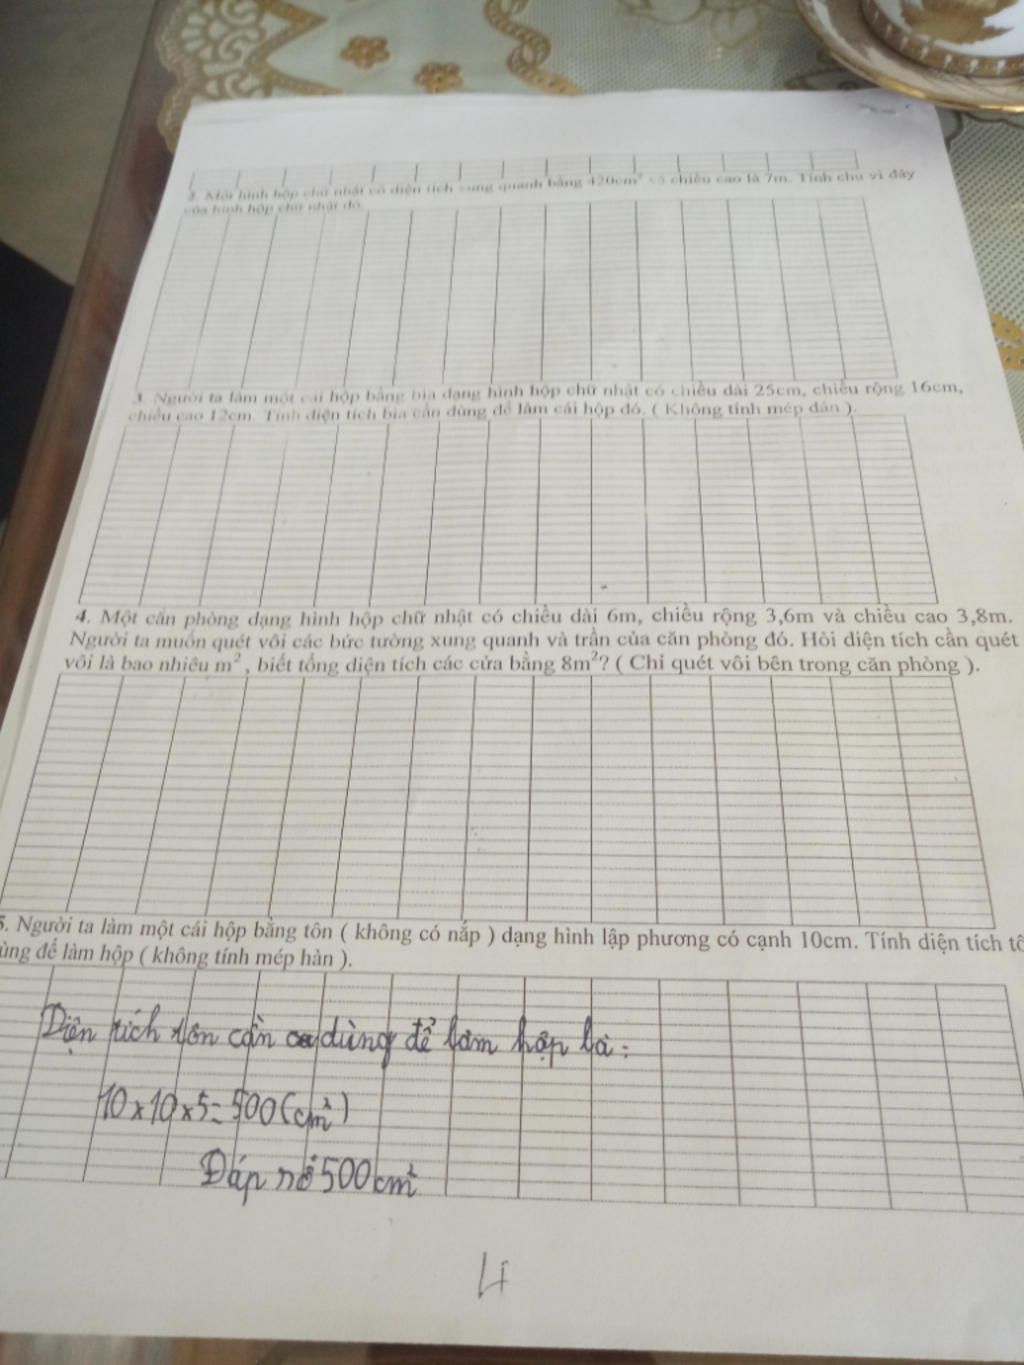 2. Một hình hộp chữ nhật có diện tích xung quanh bằng 420cm² và chiều cao là 7m. Tính chu vi đáy
của hình hộp chữ nhật đó.
3. Người ta làm một cái hộp bằng bìa dạng hình hộp chữ nhật có chiều dài 25cm, chiều rộng 16cm,
chiều cao 12cm. Tính diện tích bìa cần dùng để làm cái hộp đó. ( Không tính mép dán ).
4. Một căn phòng dạng hình hộp chữ nhật có chiều dài 6m, chiều rộng 3,6m và chiều cao 3,8m.
Người ta muốn quét vôi các bức tường xung quanh và trần của căn phòng đó. Hỏi diện tích cần quét
vôi là bao nhiêu m², biết tổng diện tích các cửa bằng 8m²? ( Chỉ quét vôi bên trong căn phòng ).
5. Người ta làm một cái hộp bằng tôn ( không có nắp ) dạng hình lập phương có cạnh 10cm. Tính diện tích tô
ùng để làm hộp ( không tính mép hàn ).
Diện tích tôn cần dùng để làm hộp là:
10 x 10 x 5 = 500 (cm²)
Đáp số 500 cm²
4